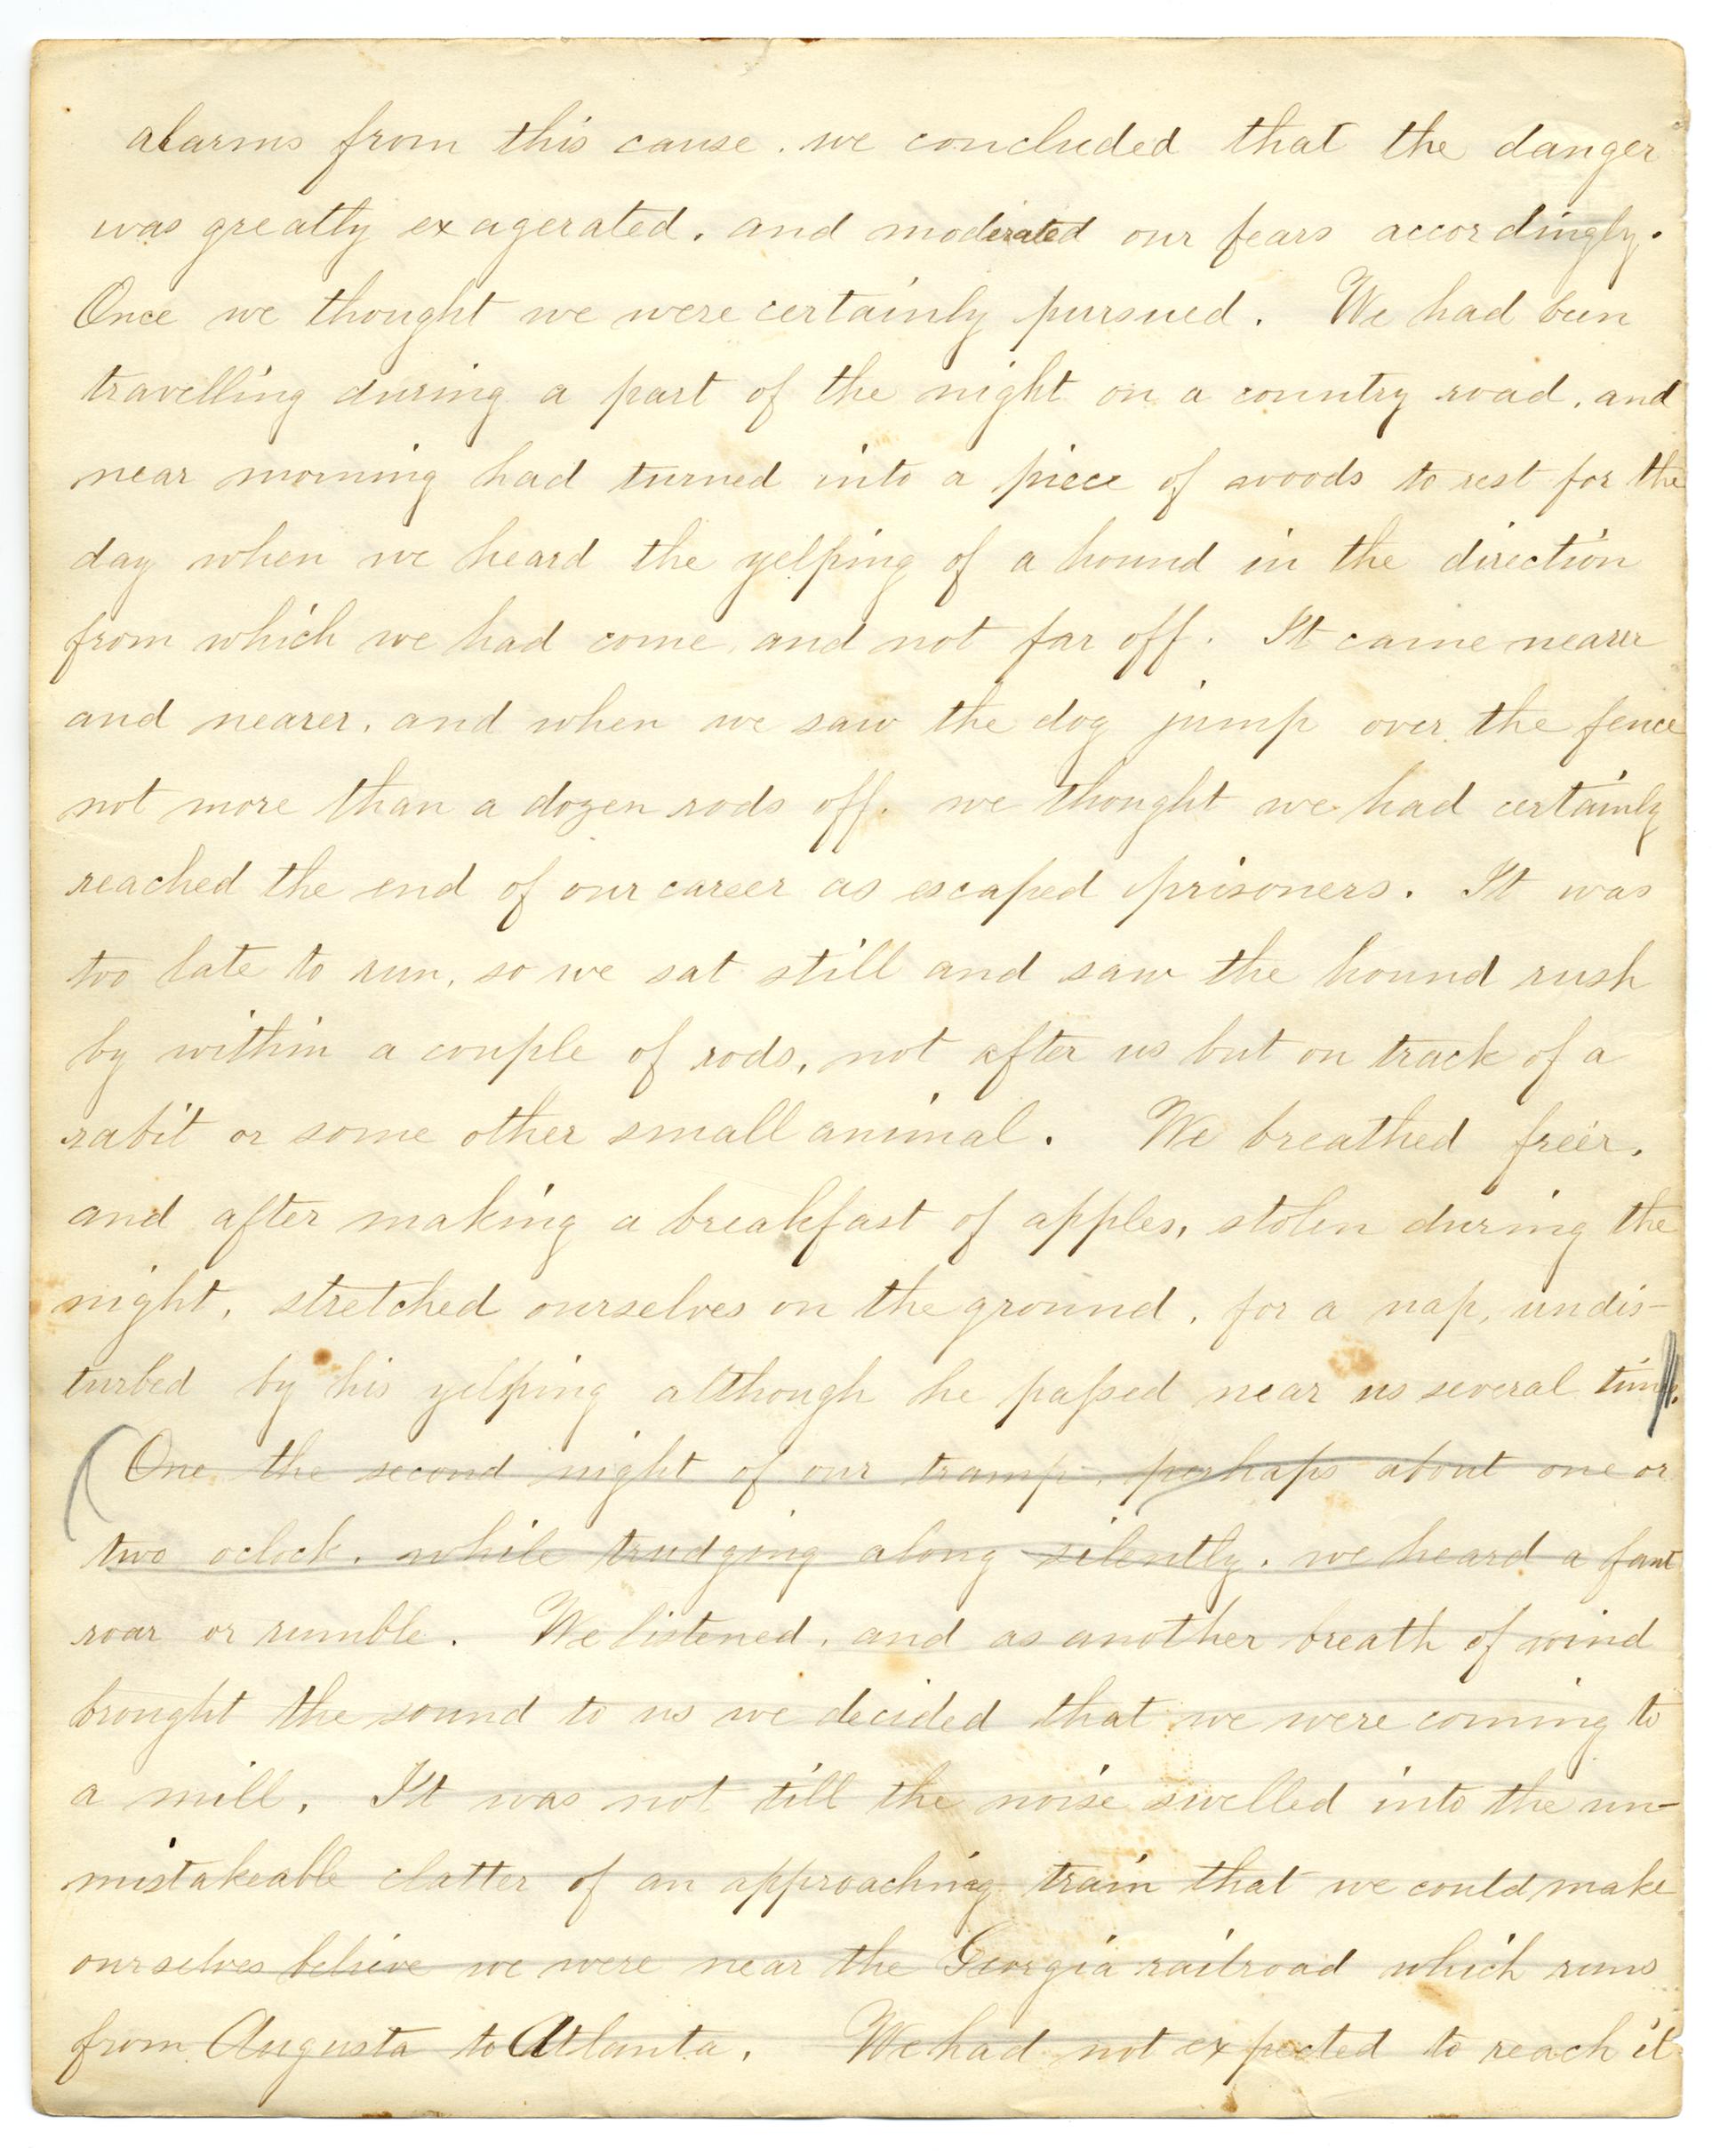 alarms from this cause. we concluded that the danger
was greatly exagerated. and moderated our fears accordingly.
Once we thought we were certainly pursued. We had been
travelling during a part of the night on a country road, and
near morning had turned into a piece of woods to rest for the
day when we heard the yelping of a hound in the direction
from which we had come, and not far off. It came nearer
and nearer, and when we saw the dog jump over the fence
not more than a dozen rods off. we thought we had certainly
reached the end of our career as escaped prisoners. It was
too late to run, so we sat still and saw the hound rush
by within a couple of rods, not after us but on track of a
rabit or some other small animal. We breathed freer,
and after making a breakfast of apples, stolen during the
night, stretched ourselves on the ground, for a nap, undis-
turbed by his yelping although he passed near us several times.
One the second night of our tramp, perhaps about one or
two oclock, while trudging along silently. we heard a fant
roar or rumble. We listened, and as another breath of wind
brought the sound to us we decided that we were coming to
a mill. It was not till the noise swelled into the un-
mistakeable clatter of an approaching train that we could make
ourselves believe we were near the Georgia railroad which runs
from Augusta to Atlanta. We had not expected to reach it